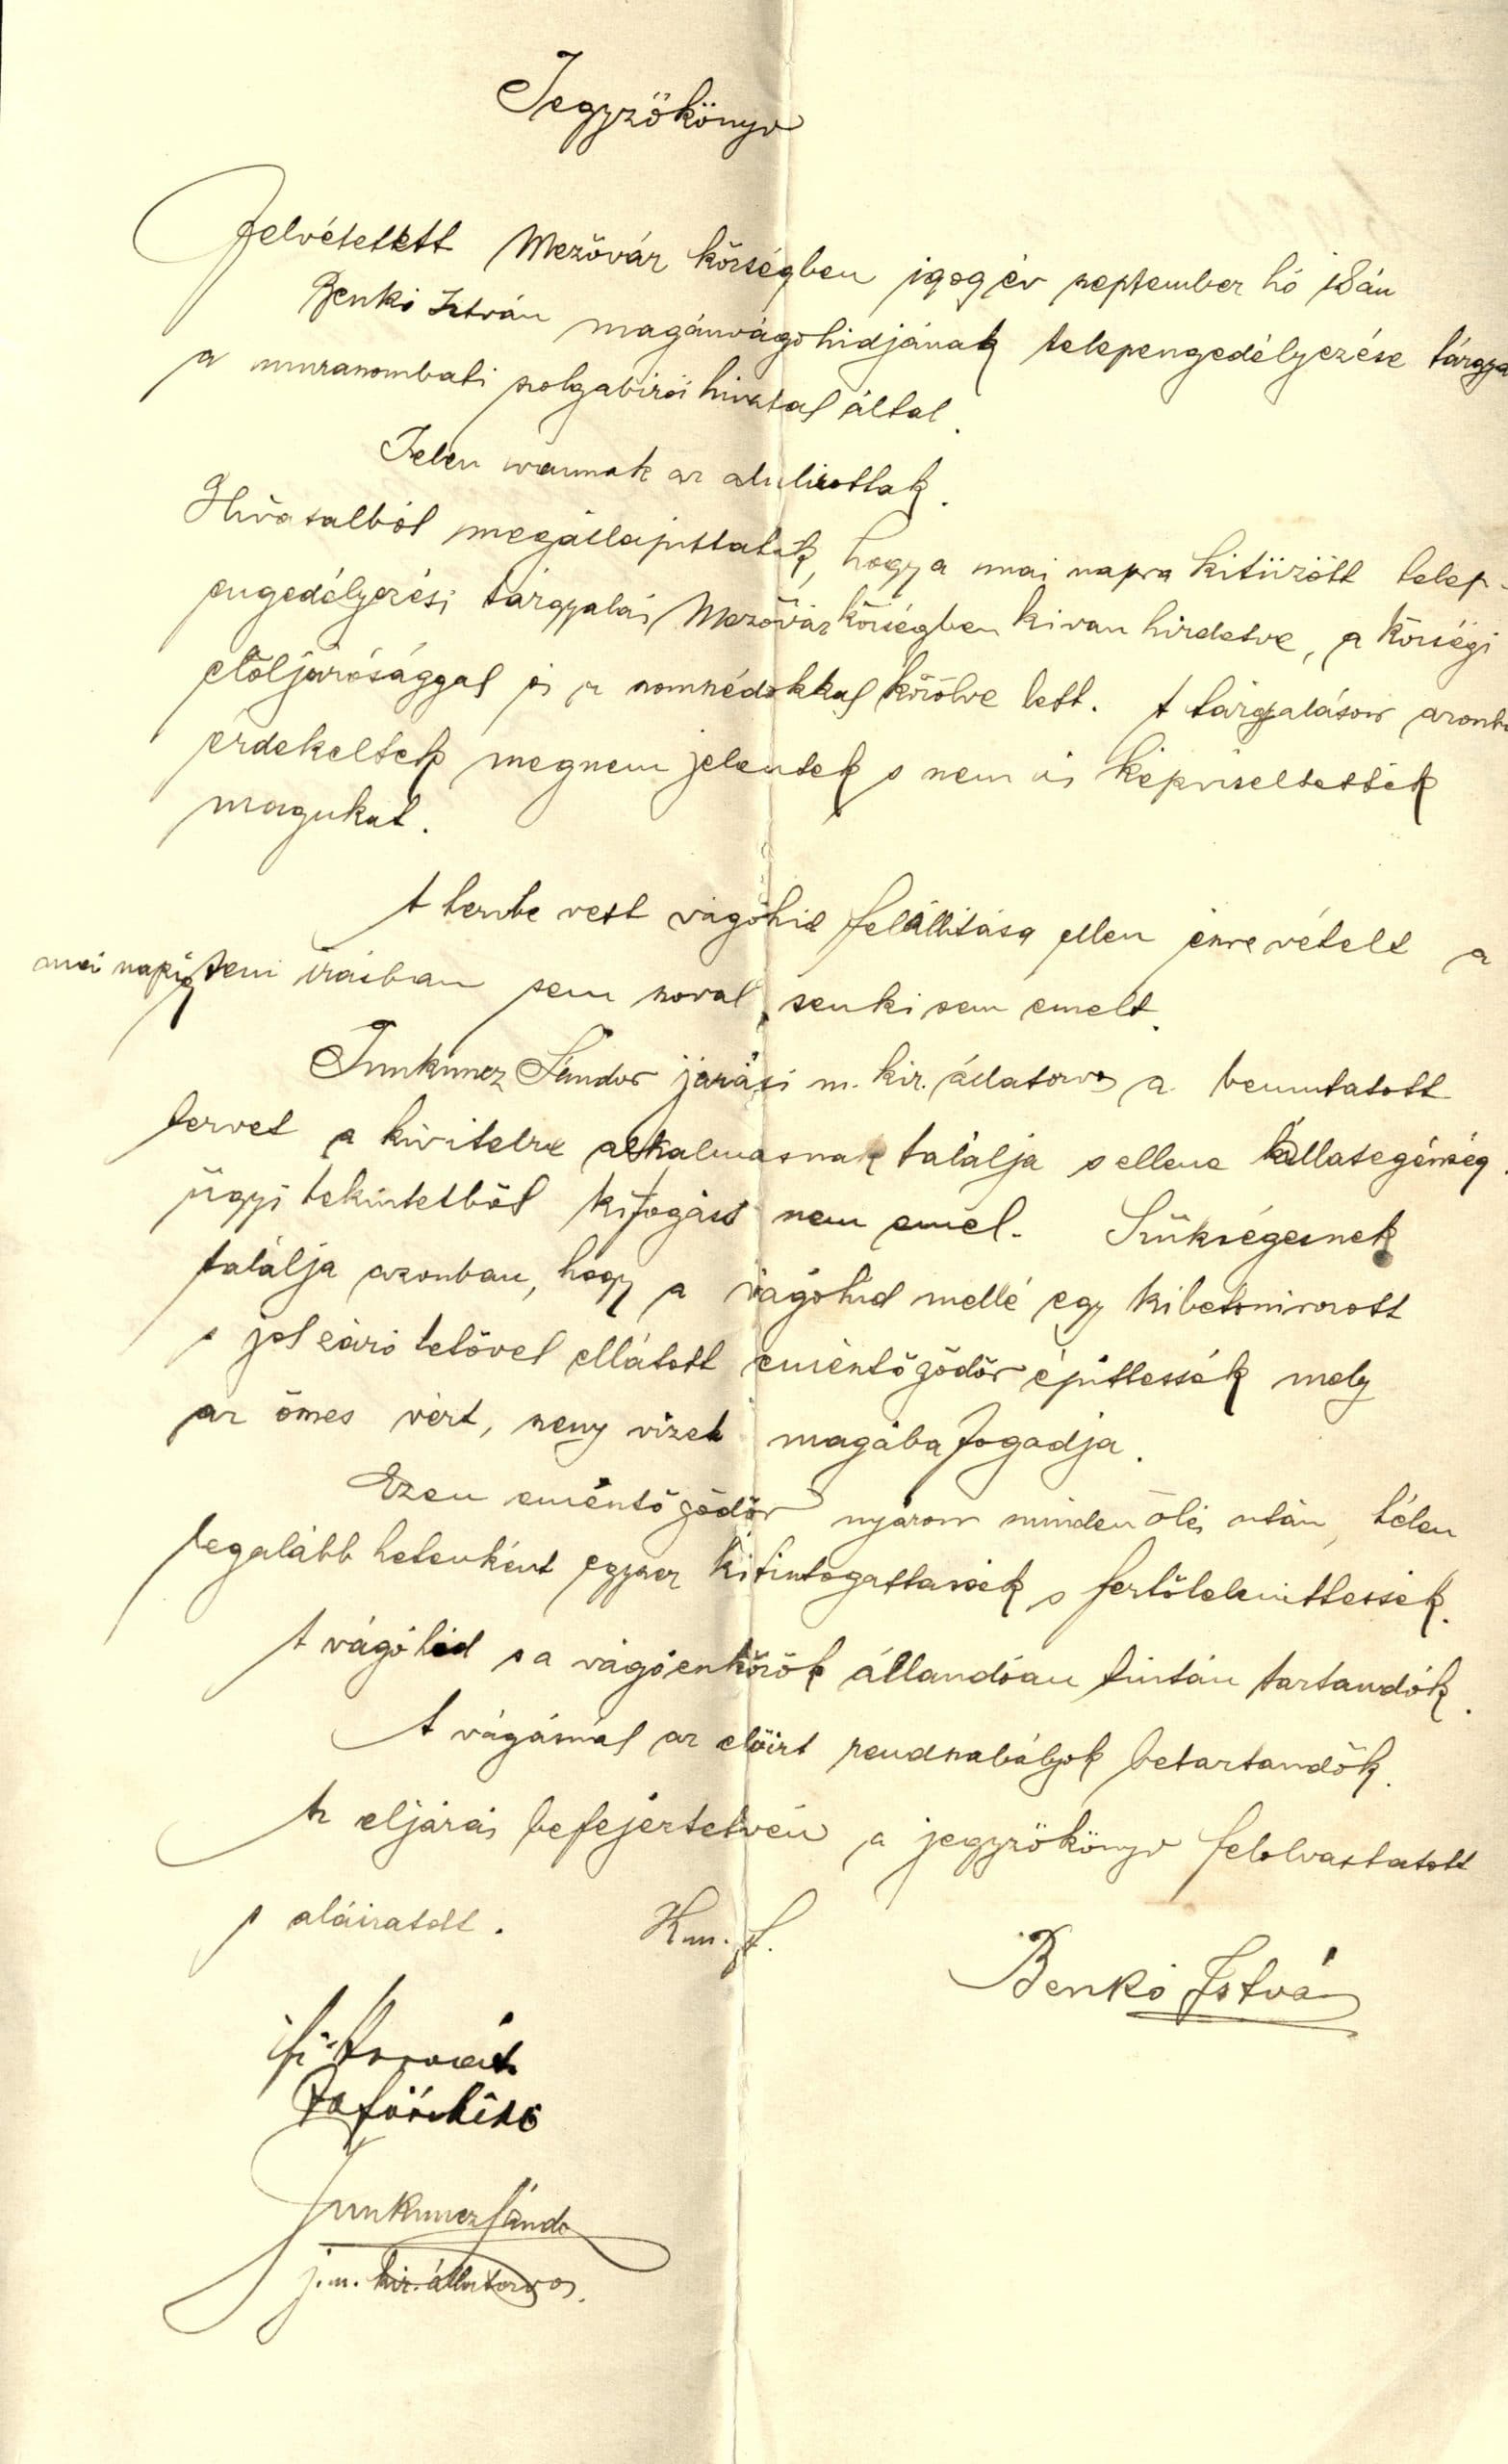 Jegyzőkönyv
Felvétetett Mezővár községben 1909 év szeptember hó 18án
Benkó István magánvágóhidjának telepengedélyezése tárgya
a muraszombati szolgabirói hivatal által.
Jelen vannak az alulirottak.
Hivatalból megállapittatik, hogy a mai napra kitüzött telep-
engedélyezési tárgyalás Mezővár községben ki van hirdetve, a községi
elöljárósággal és a szomszédokkal közölve lett. A tárgyaláson azonba
érdekeltek meg nem jelentek s nem is képviseltették
magukat.
A tervbe vett vágóhid felállitása ellen észrevételt a
mai napig sem irásban sem szoval senki sem emelt.
Junkuncz Sándor járási m. kir. állatorvos a bemutatott
tervet a kivitelre alkalmasnak találja s ellene állategészség
ügyi tekintetből kifogást nem emel. Szükségesnek
találja azonban, hogy a vágóhid mellé egy kibetonirozott
s jol záró tetővel ellátott emésztő gödör épittessék mely
az összes vért, szeny vizet magába fogadja.
Ezen emésztő gödör nyáron minden ölés után, télen
legalább hetenként egyszer kitisztogattassék s fertőtelenittessék.
A vágóhid s a vágóeszközök állandóan tisztán tartandók.
A vágásnál az előirt rendszabályok betartandók.
Az eljárás befejeztetvén a jegyzőkönyv felolvastatott
s aláiratott. Kmf.
Benkó István
Junkuncz Sándor
j. m. kir. állatorvos.